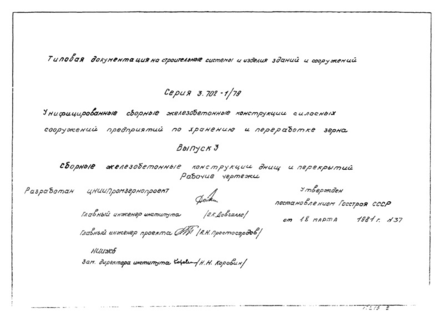 Типовая документация на строительные системы и изделия зданий и сооружений
Серия 3.702-1/79
Унифицированные сборные железобетонные конструкции силосных
сооружений предприятий по хранению и переработке зерна
Выпуск 3
Сборные железобетонные конструкции днищ и перекрытий
Рабочие чертежи
Разработан ЦНИИПромзернопроект
Утвержден
постановлением Госстроя СССР
от 18 марта 1981 г. N37
Главный инженер института
Главный инженер проекта /А.Н. Простосердов/
НИИЖБ
Зам. директора института /Н.Н. Коровин/